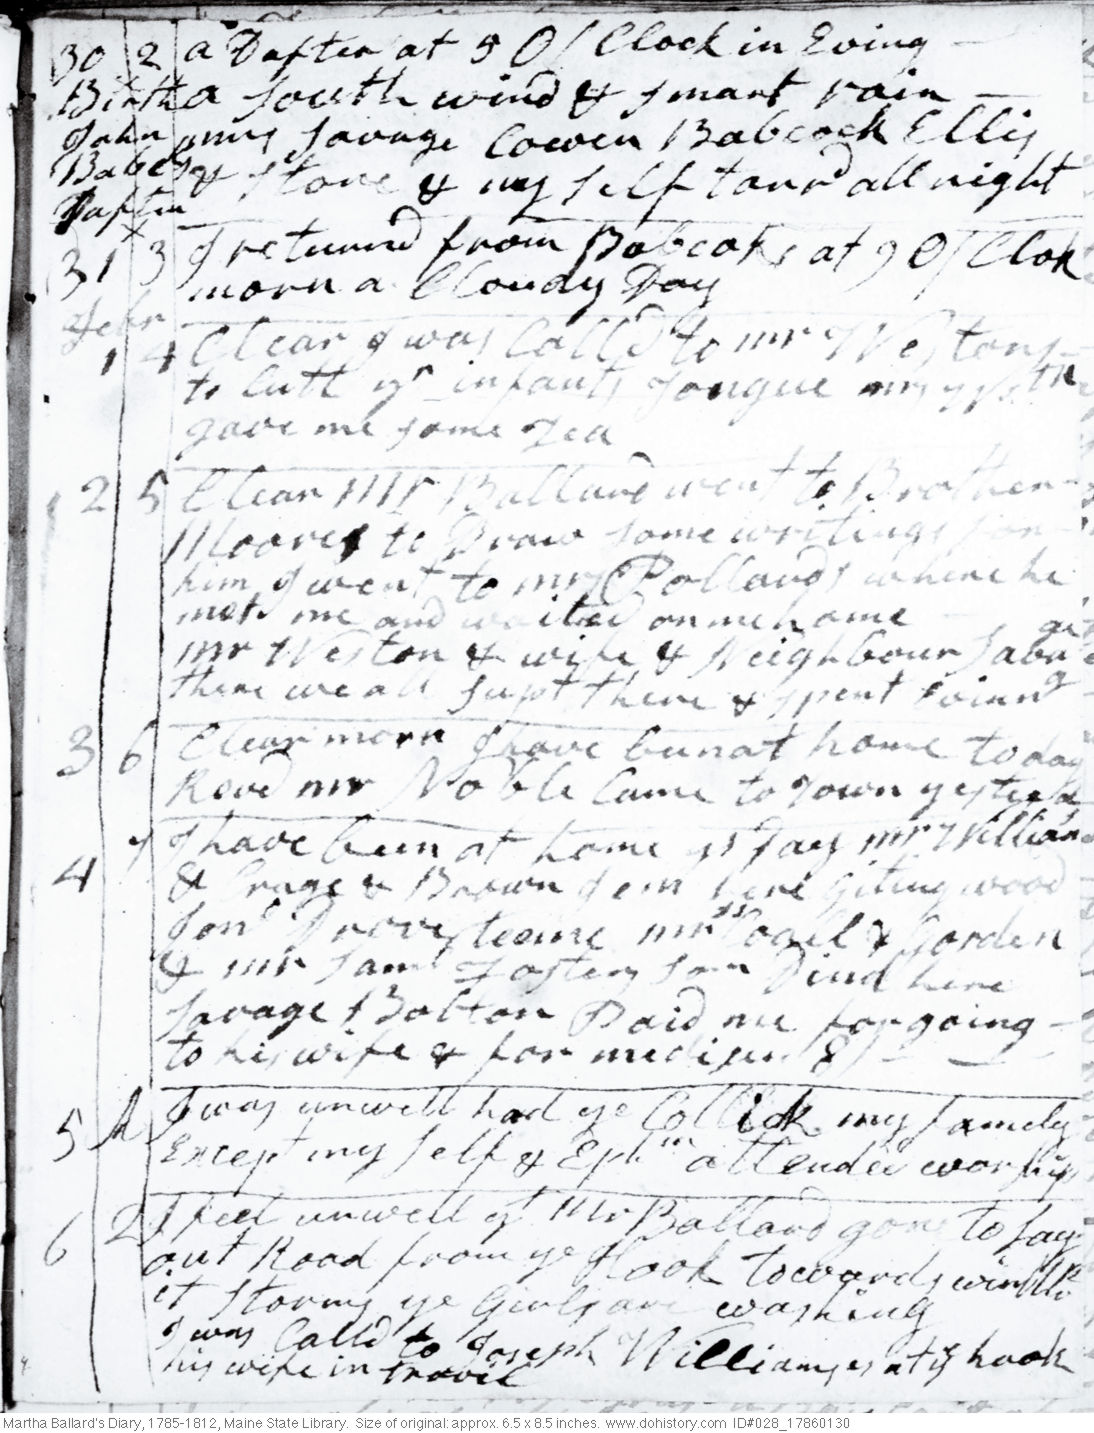 30 2 a Dafter at 5 O/ Clock in Eving
Birth a South wind & Smart rain
John mrs Savage Cowen Babcock Ellis
Babcok & Stone & my Self tarrd all night
Dafter
31 3 I returnd from Babcoks at 9 O/ Clok
morn a Cloudy Day
Febr
1 4 Clear I was Calld to mr Westons
to Cutt yr infants Tongue mrs
gave me some Tea
2 5 Clear Mr Ballard went to Brother
Moores to Draw some writings for
him I went to mrs Pollards where he
met me and waited on me home
mr Weston & wife & Neighbour Savage
there we all Supt there & Spent Evinng
3 6 Clear morn I have been at home to day
Revd mr Noble Came to Town yesterd
4 7 I have been at home ys Day mr William
& Crage & Brown been here Giting wood
Jon Drove teeme mrss Cogil & Gorden
& mr Saml Fosters Son Dind here
Savage Bolton Paid me for going
to his wife & for medisen 8/
5 A I was unwell had ye Collick my family
Except my Self & Ephm attended worship
6 2 I feel unwell yt Mr Ballard gone to Lay
out Road from ye Hook towards winthp
it storms ye Girls are washing
I was Calld to Joseph Williamses at ye hook
his wife in Travil
Martha Ballard's Diary, 1785-1812, Maine State Library. Size of original: approx. 6.5 x 8.5 inches. www.dohistory.com ID#028_17860130